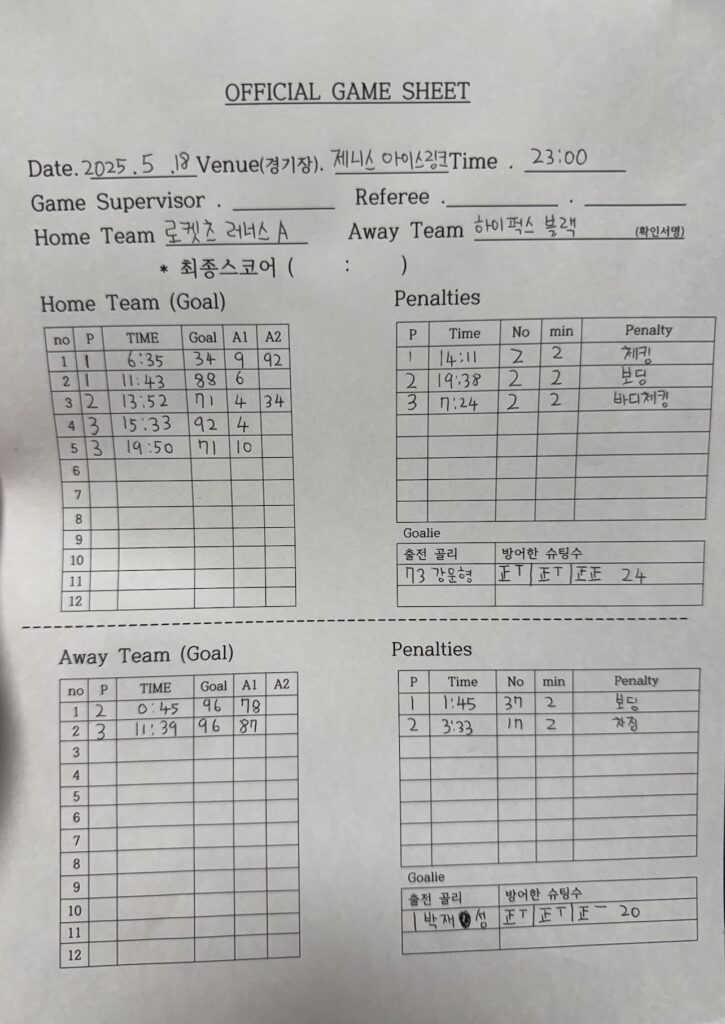 OFFICIAL GAME SHEET
Date. 2025. 5 .18 Venue(경기장). 제니스 아이스링크 Time . 23:00
Game Supervisor . Referee . .
Home Team 로켓츠 러너스 A Away Team 하이퍽스 블랙 (확인서명)
* 최종스코어 ( : )
Home Team (Goal)
no P TIME Goal A1 A2
1 1 6:35 34 9 92
2 1 11:43 88 6
3 2 13:52 71 4 34
4 3 15:33 92 4
5 3 19:50 71 10
6
7
8
9
10
11
12
Penalties
P Time No min Penalty
1 14:11 2 2 체킹
2 19:38 2 2 보딩
3 7:24 2 2 바디체킹
Goalie
출전 골리 방어한 슈팅수
73 강운형 正T | 正T | 正正 24
Away Team (Goal)
no P TIME Goal A1 A2
1 2 0:45 96 78
2 3 11:39 96 87
3
4
5
6
7
8
9
10
11
12
Penalties
P Time No min Penalty
1 1:45 37 2 보딩
2 3:33 17 2 차징
Goalie
출전 골리 방어한 슈팅수
1 박재 성 正T | 正T | 正一 20